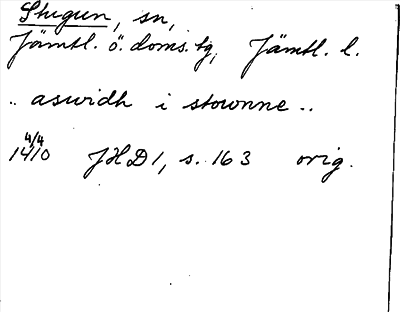 Stugun, sn,
Jämtl. ö. doms. tg, Jämtl. l.
.. aswidh i stownne ..
4/4
1410 JHD 1, s. 163 orig.